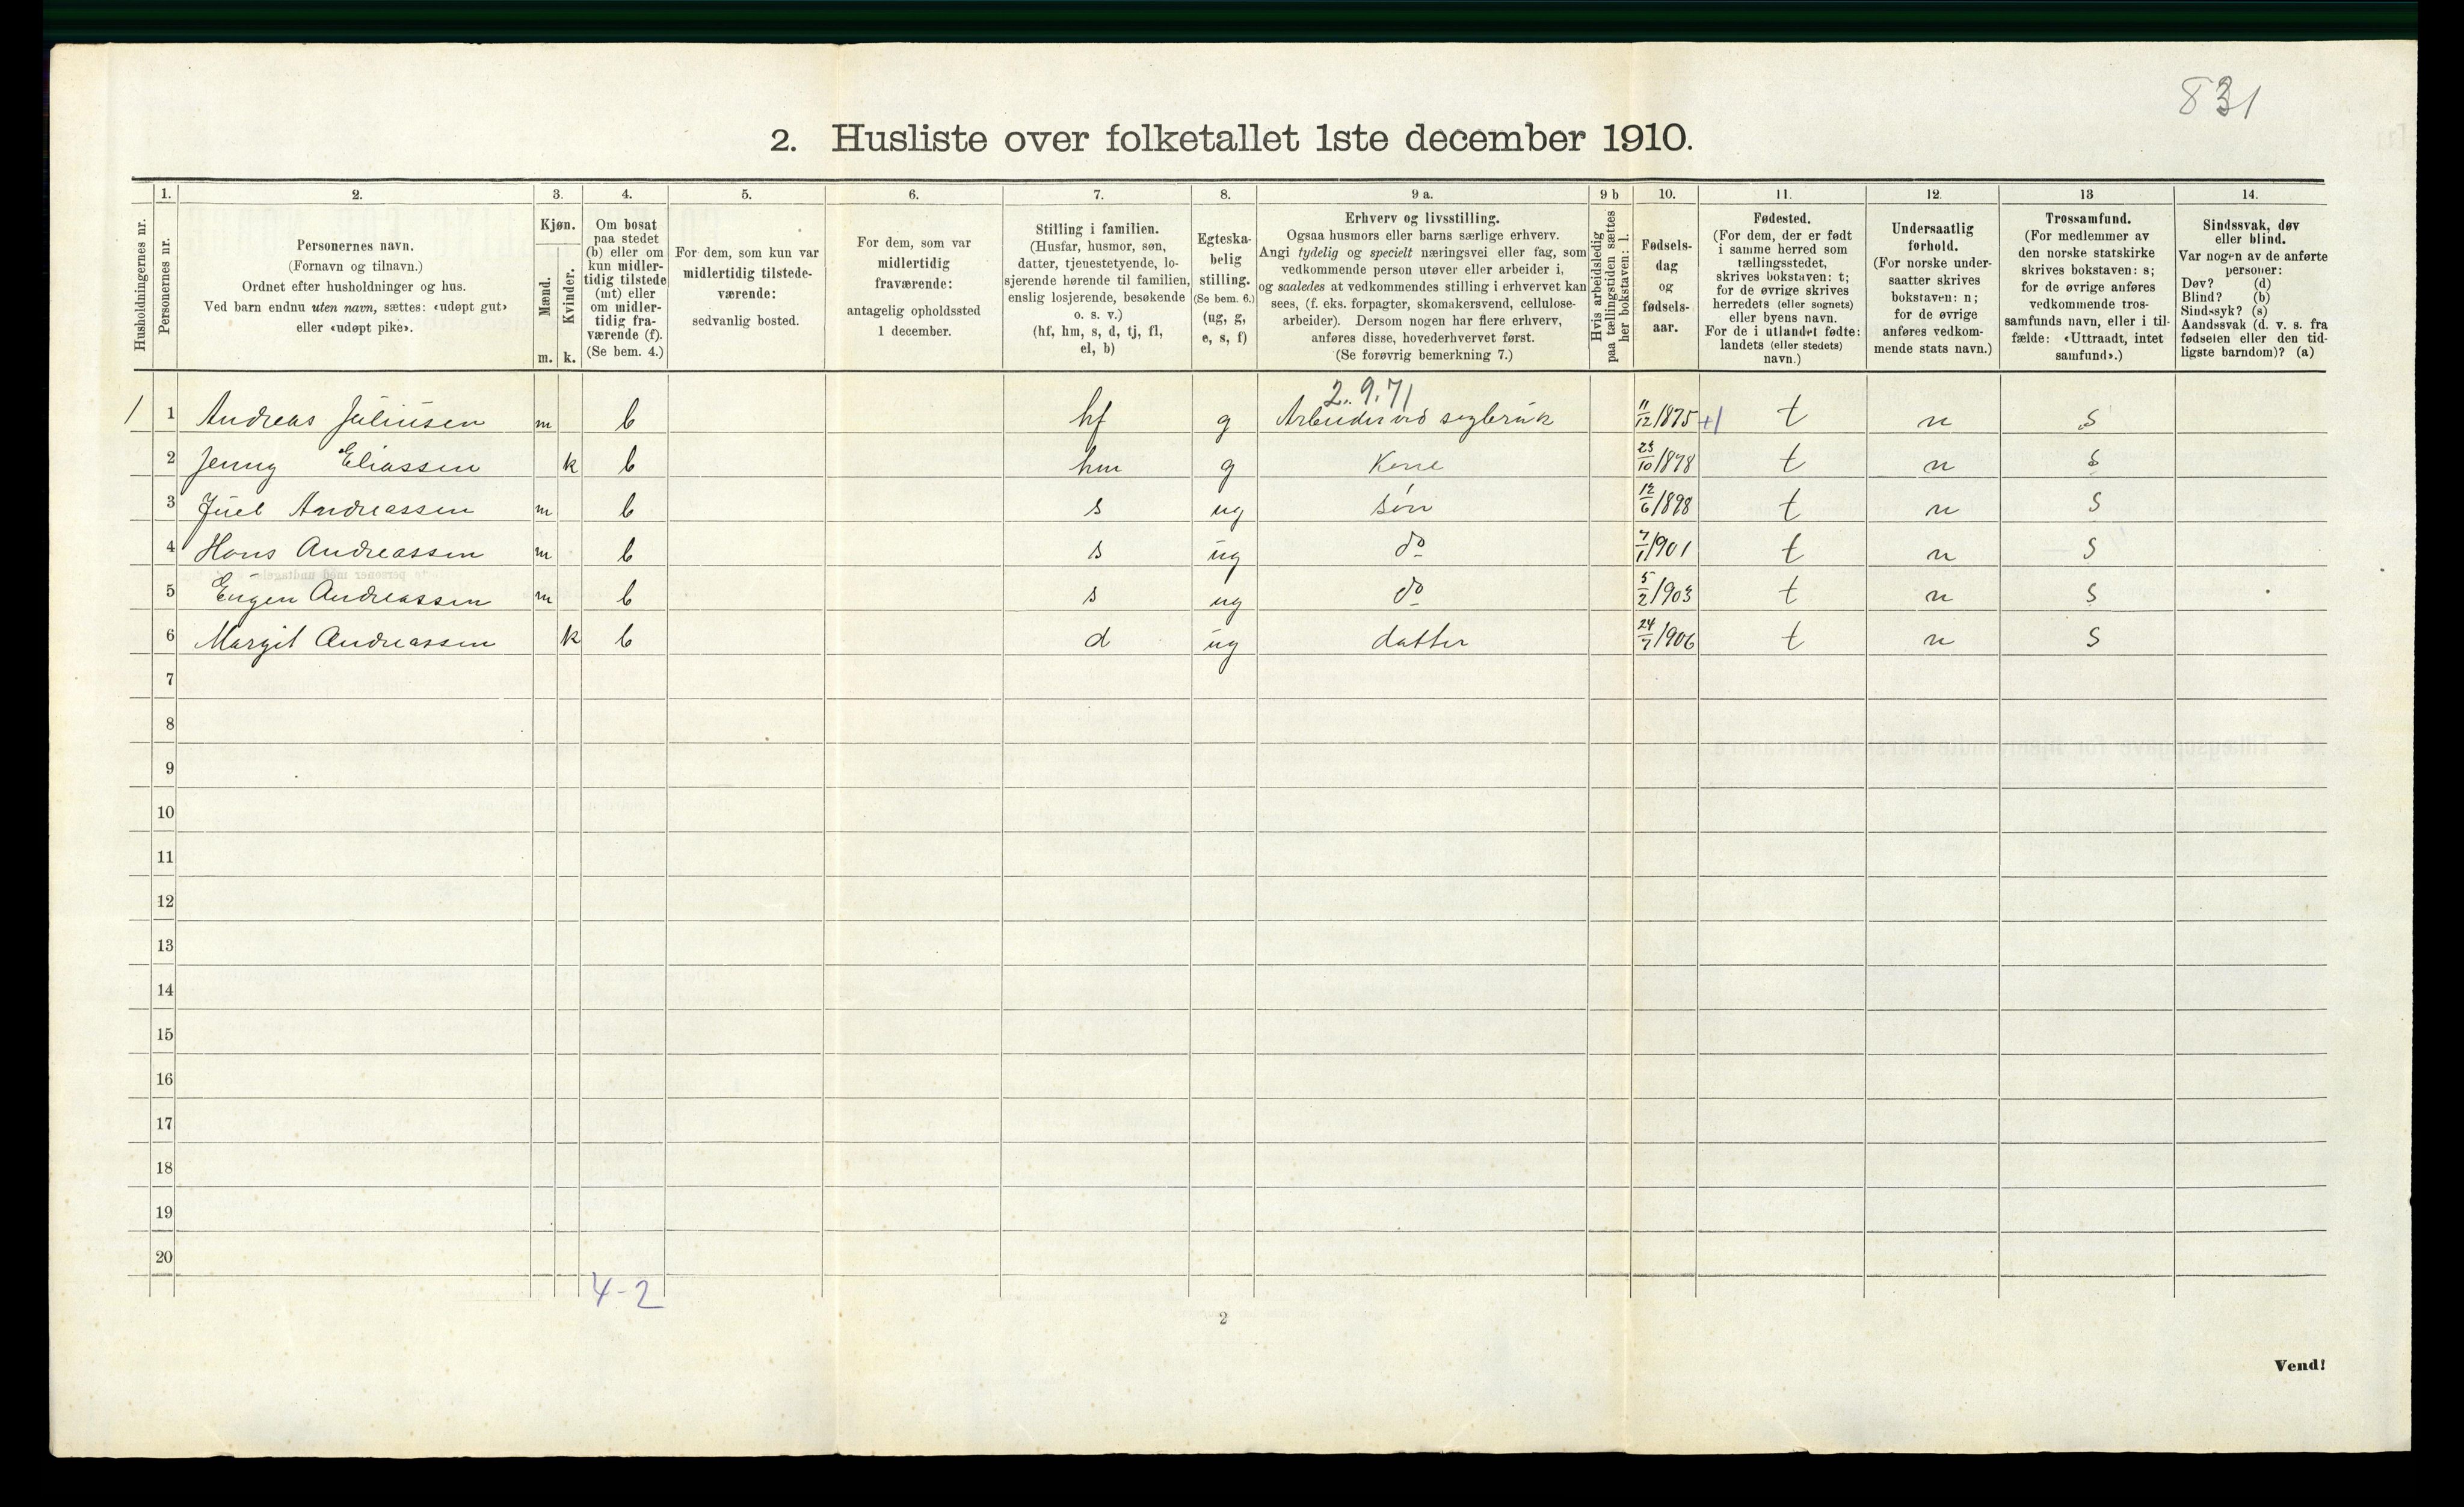 831
2. Husliste over folketallet 1ste december 1910.
Husholdningernes nr.
1.
Personernes nr.
2.
Personernes navn.
(Fornavn og tilnavn.)
Ordnet efter husholdninger og hus.
Ved barn endnu uten navn, sættes: «udøpt gut»
eller «udøpt pike».
3.
Kjøn.
Mænd.
m.
Kvinder.
k.
4.
Om bosat
paa stedet
(b) eller om
kun midler-
tidig tilstede
(mt) eller
om midler-
tidig fra-
værende (f).
(Se bem. 4.)
5.
For dem, som kun var
midlertidig tilstede-
værende:
sedvanlig bosted.
6.
For dem, som var
midlertidig
fraværende:
antagelig opholdssted
1 december.
7.
Stilling i familien.
(Husfar, husmor, søn,
datter, tjenestetyende, lo-
sjerende hørende til familien,
enslig losjerende, besøkende
o. s. v.)
(hf, hm, s, d, tj, fl,
el, b)
8.
Egteska-
belig
stilling.
(Se bem. 6.)
(ug, g,
e, s, f)
9 a.
Erhverv og livsstilling.
Ogsaa husmors eller barns særlige erhverv.
Angi tydelig og specielt næringsvei eller fag, som
vedkommende person utøver eller arbeider i,
og saaledes at vedkommendes stilling i erhvervet kan
sees, (f. eks. forpagter, skomakersvend, cellulose-
arbeider). Dersom nogen har flere erhverv,
anføres disse, hovederhvervet først.
(Se forøvrig bemerkning 7.)
9 b
Hvis arbeidsledig
paa tællingstiden sættes
her bokstaven: l.
10.
Fødsels-
dag
og
fødsels-
aar.
11.
Fødested.
(For dem, der er født
i samme herred som
tællingsstedet,
skrives bokstaven: t;
for de øvrige skrives
herredets (eller sognets)
eller byens navn.
For de i utlandet fødte:
landets (eller stedets)
navn.)
12.
Undersaatlig
forhold.
(For norske under-
saatter skrives
bokstaven: n;
for de øvrige
anføres vedkom-
mende stats navn.)
13
Trossamfund.
(For medlemmer av
den norske statskirke
skrives bokstaven: s;
for de øvrige anføres
vedkommende tros-
samfunds navn, eller i til-
fælde: «Uttraadt, intet
samfund».)
14.
Sindssvak, døv
eller blind.
Var nogen av de anførte
personer:
Døv? (d)
Blind? (b)
Sindssyk? (s)
Aandssvak (d. v. s. fra
fødselen eller den tid-
ligste barndom)? (a)
2.9.71
1 1 Andreas Juliusen m b hf g Arbeider ved sagbruk 11/12 1875 +1 t n s
2 Jenny Eliassen k b hm g Kone 23/10 1878 t n s
3 Juel Andreassen m b s ug søn 12/6 1898 t n s
4 Hans Andreassen m b s ug do 7/1 1901 t n s
5 Eugen Andreassen m b s ug do 5/2 1903 t n s
6 Margit Andreassen k b d ug datter 24/7 1906 t n s
7
8
9
10
11
12
13
14
15
16
17
18
19
20
4-2
2
Vend!